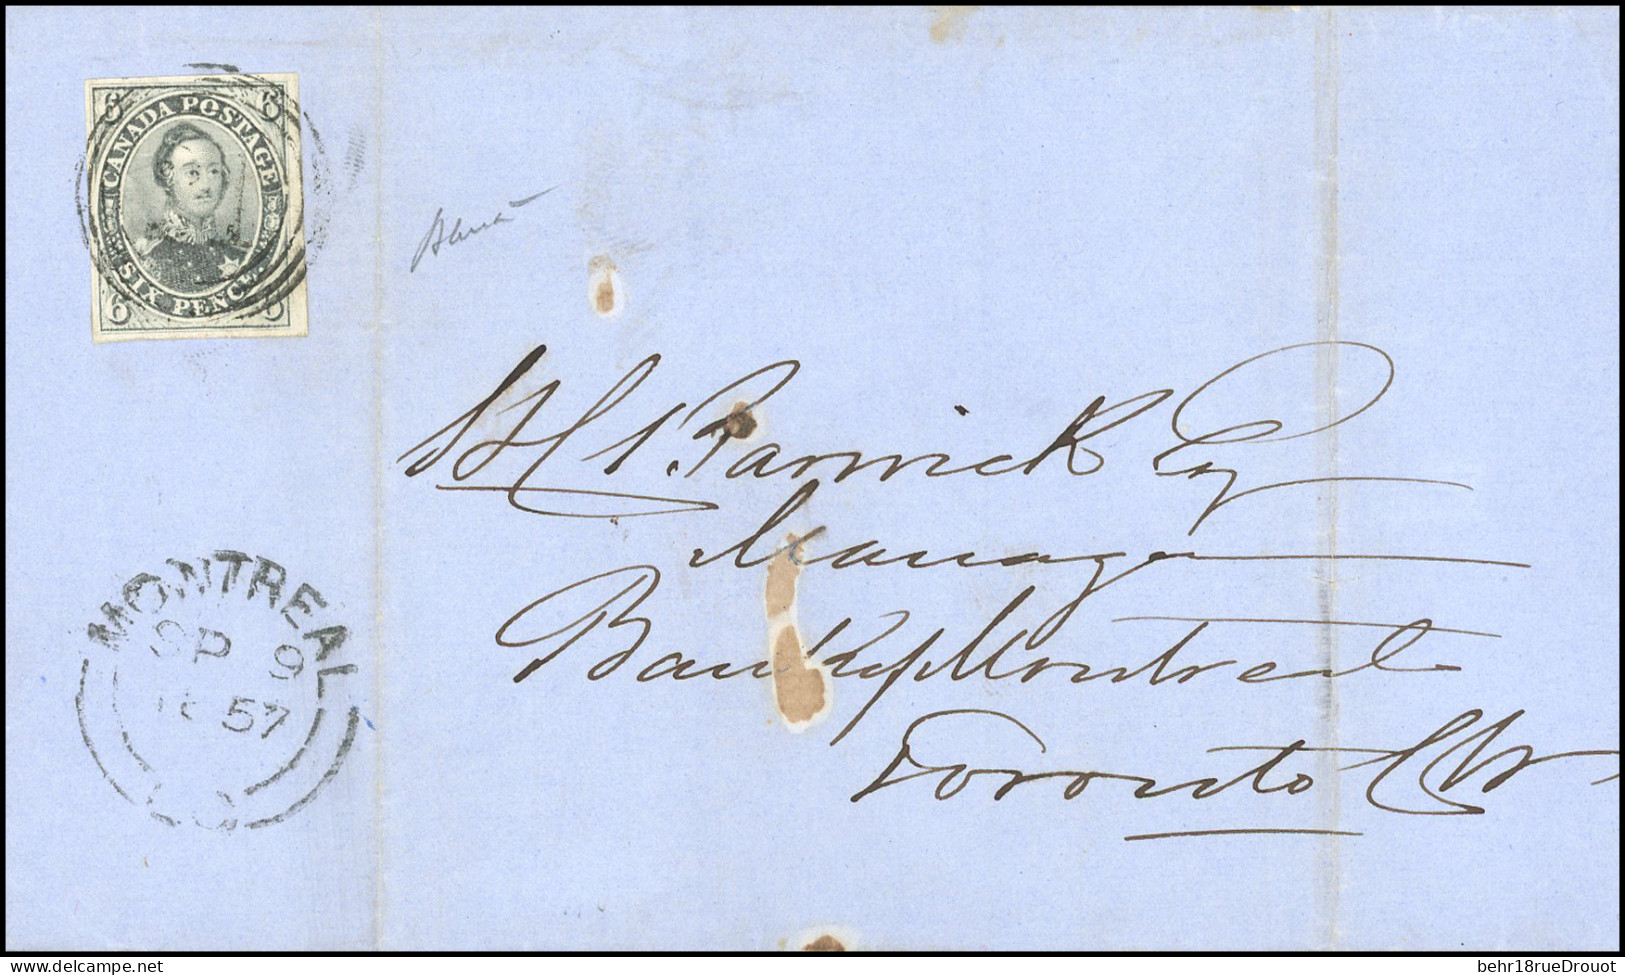 CANADA POSTAGE
SIX PENCE
6 6
6 6
Esq
Manager
Bank of Montreal
Toronto CW
MONTREAL
SP 9
1857
delcampe.net
behr18rueDrouot